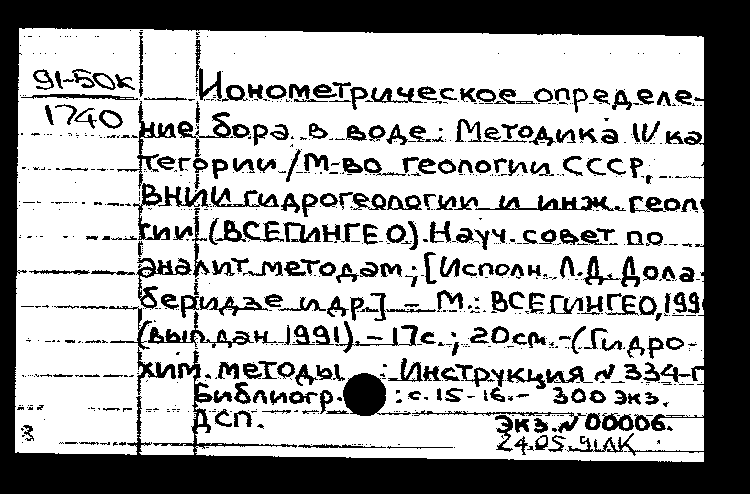 91-50к
1740
Ионометрическое определе-
ние бора в воде: Методика IV ка
тегории / М-во геологии СССР,
ВНИИ гидрогеологии и инж. геоло
гии (ВСЕГИНГЕО). Науч. совет по
аналит. методам; [Исполн. Л.Д. Дола-
беридзе и др.] - М.: ВСЕГИНГЕО, 199
(вып. дан 1991). - 17с.; 20см. - (Гидро-
хим. методы : Инструкция № 334-Г
Библиогр. : с. 15-16. - 300 экз.
ДСП.
Экз. № 00006.
24.05.91 ЛК